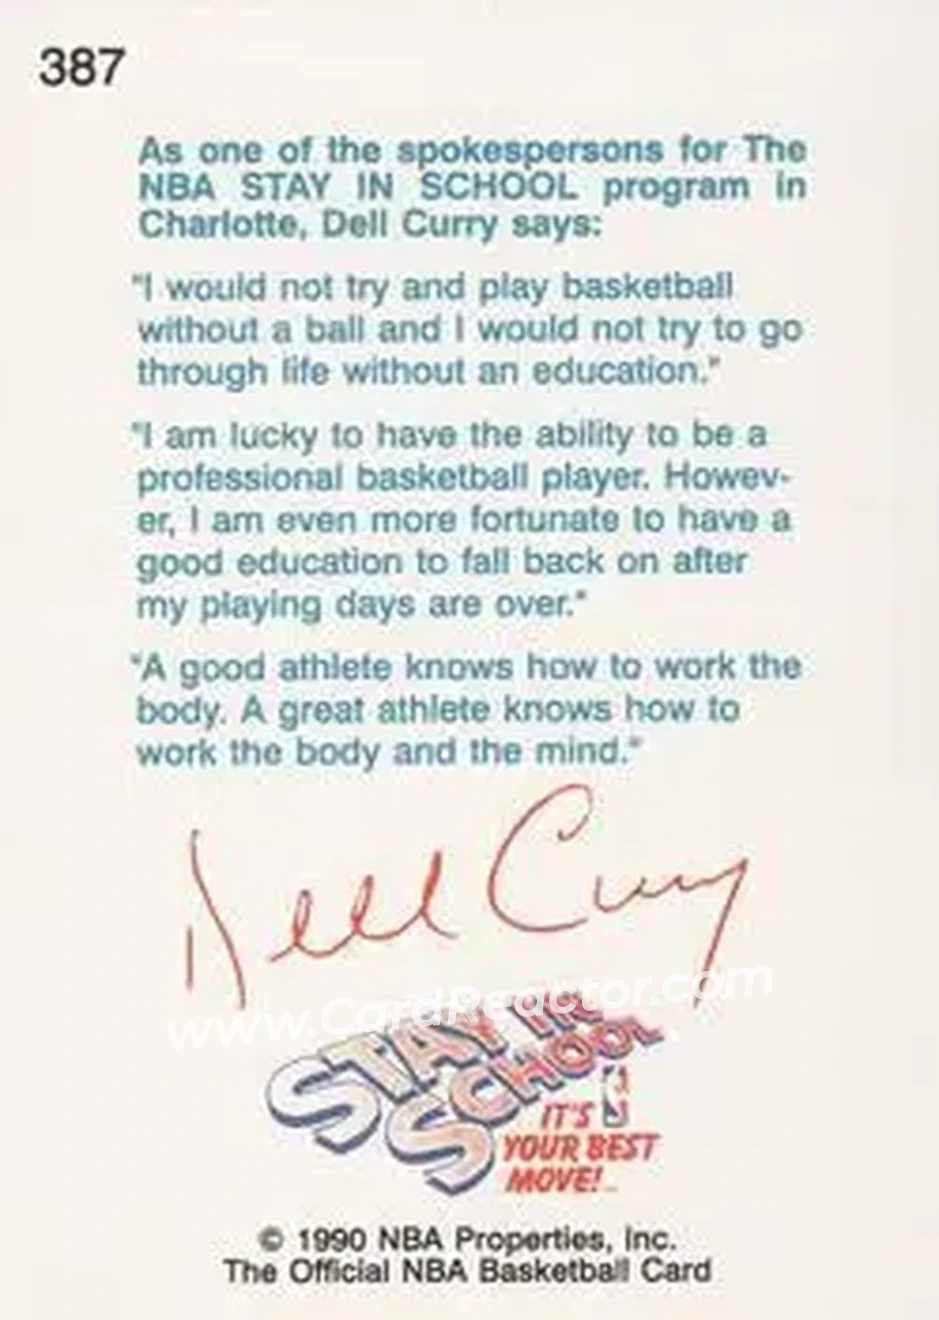 387
As one of the spokespersons for The
NBA STAY IN SCHOOL program in
Charlotte, Dell Curry says:
"I would not try and play basketball
without a ball and I would not try to go
through life without an education."
"I am lucky to have the ability to be a
professional basketball player. Howev-
er, I am even more fortunate to have a
good education to fall back on after
my playing days are over."
"A good athlete knows how to work the
body. A great athlete knows how to
work the body and the mind."
Dell Curry
www.CardReactor.com
STAY IN
SCHOOL
IT'S
YOUR BEST
MOVE!
© 1990 NBA Properties, Inc.
The Official NBA Basketball Card